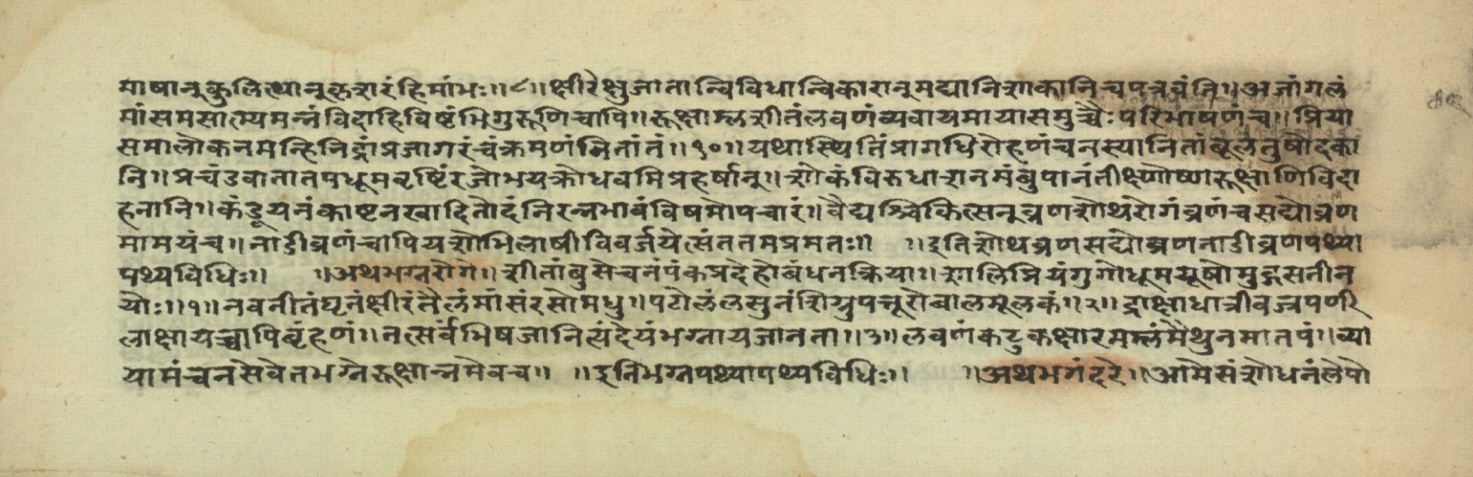 माषानुकुलित्थानुक्तशरंहिमांभः॥८॥क्षीरेक्षुजातान्विविधान्विकारानुमद्यानिशाकानिचपत्रवंति॥अजांगलं
मांसमसात्म्यमन्नंविदाहिविष्टंभिगुरूणिचापि॥रूक्षाम्लशीतंलवणंव्यवायमायासमुच्चैःपरिभाषणंच॥प्रिया
समालोकनमन्हिनिद्रांप्रजागरंचंक्रमणंनितांतं॥१०॥यथास्थितिंप्रागधिरोहणंचनस्यानितांबूलतुषोदका
नि॥प्रचंडवातातपधूमवृष्टिंरजोभयक्रोधवमिप्रहर्षानु॥शोकंविरुधाशनमंबुपानंतीक्ष्णोष्णरूक्षाणिविदा
हनानि॥कंडूयनंकाष्टनखादितोदंनिरन्नभावंविषमोपचारं॥वैद्यश्चिकित्सनुव्रणशोथरोगंव्रणंचसद्योव्रण
मामयंच॥नाडीव्रणंचापियशोभिलाषीविवर्जयेत्संततमप्रमतः॥ ॥इतिशोथव्रणसद्योव्रणनाडीव्रणपथ्या
पथ्यविधिः॥ ॥अथभग्नरोगे॥शीतांबुसेचनंपंकप्रदेहोबंधनक्रिया॥शालिप्रियंगुगोधूमयूषोमुद्गसतीन
योः॥१॥नवनीतंघृतंक्षीरंतैलंमांसंरसोमधु॥पटोलंलसुनंशिग्रुपत्तूरोबालमूलकं॥२॥द्राक्षाधात्रीवज्रपर्णी
लाक्षायच्चापिबृंहणं॥तत्सर्वंभिषजानित्यंदेयंभग्नायजानता॥३॥लवणंकटुकक्षारमम्लंमैथुनमातपं॥व्या
यामंचनसेवेतभग्नेरूक्षान्नमेवच॥ ॥इतिभग्नपथ्यापथ्यविधिः॥ ॥अथभगंदरे॥आमेसंशोधनंलेपो